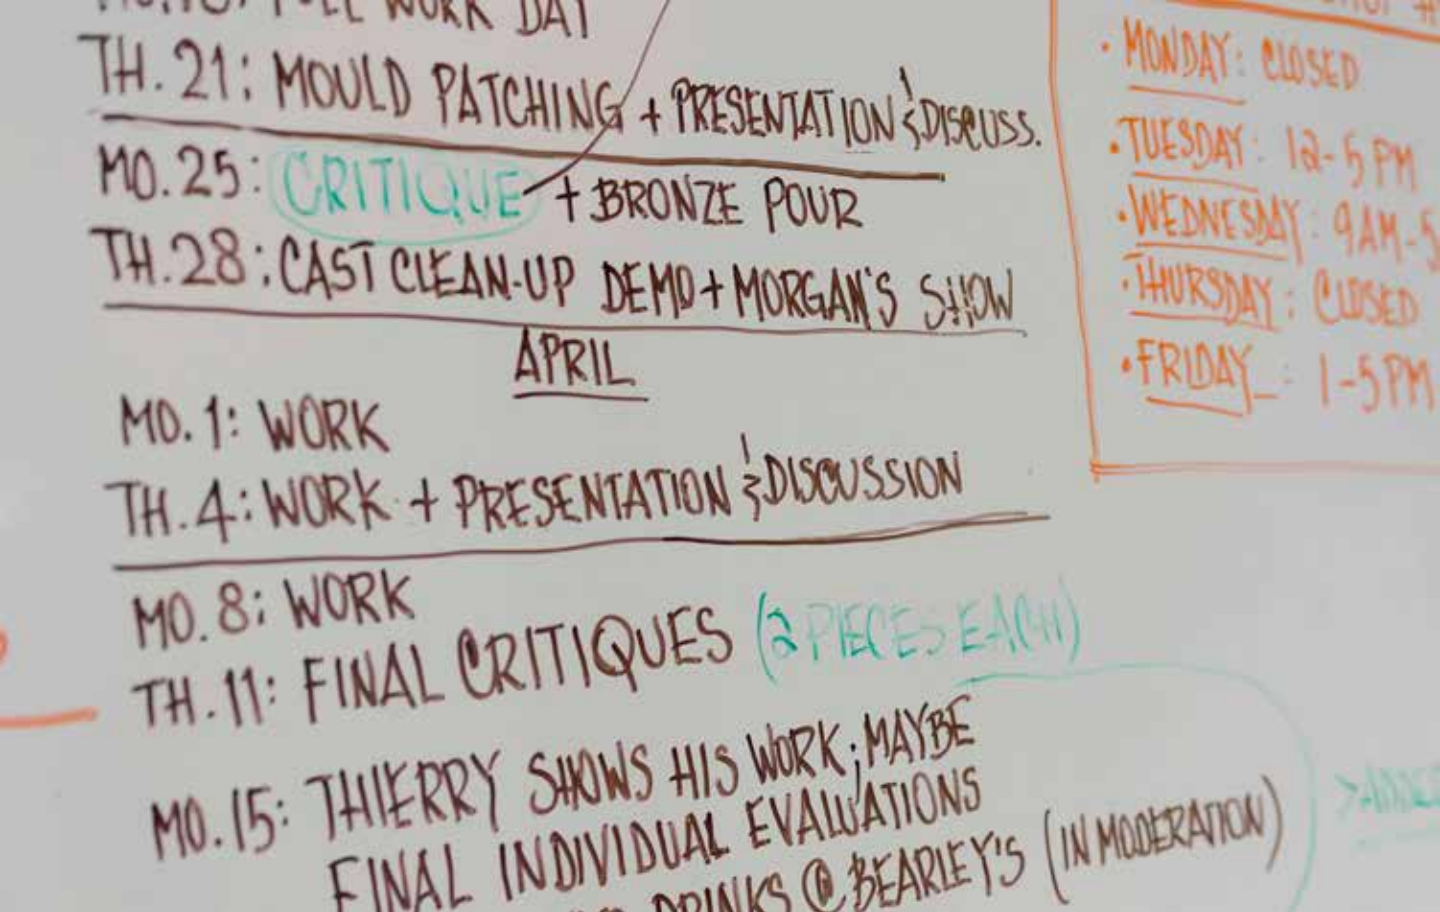 FULL WORK DAY
TH. 21: MOULD PATCHING + PRESENTATION & DISCUSS.
MO. 25: CRITIQUE + BRONZE POUR
TH. 28: CAST CLEAN-UP DEMO + MORGAN'S SHOW
APRIL
MO. 1: WORK
TH. 4: WORK + PRESENTATION & DISCUSSION
MO. 8: WORK
TH. 11: FINAL CRITIQUES (2 PIECES EACH)
MO. 15: THIERRY SHOWS HIS WORK; MAYBE
FINAL INDIVIDUAL EVALUATIONS
DRINKS @ BEARLEY'S (IN MODERATION)
• MONDAY: CLOSED
• TUESDAY: 12-5 PM
• WEDNESDAY: 9AM-5
• THURSDAY: CLOSED
• FRIDAY: 1-5PM